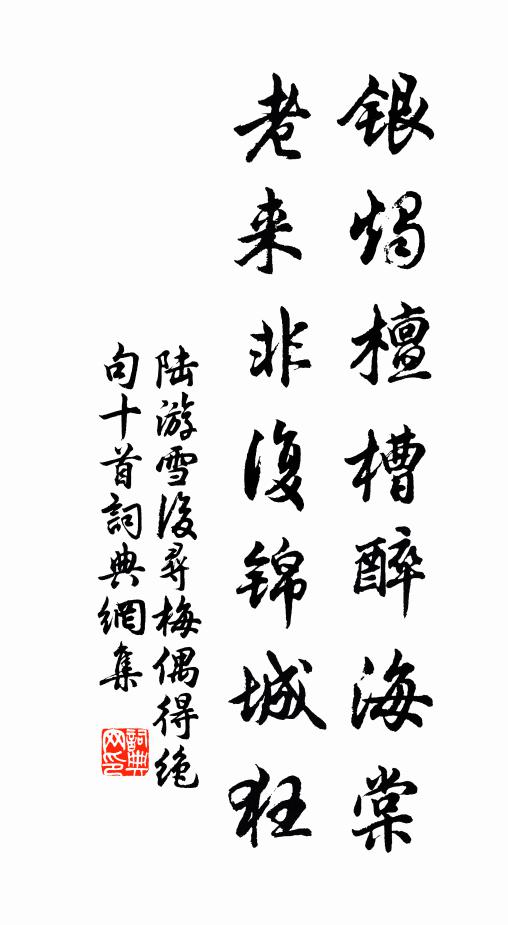 银烛檀槽醉海棠
老来非复锦城狂
陆游雪後寻梅偶得绝
句十首詞典網集
詞典
网